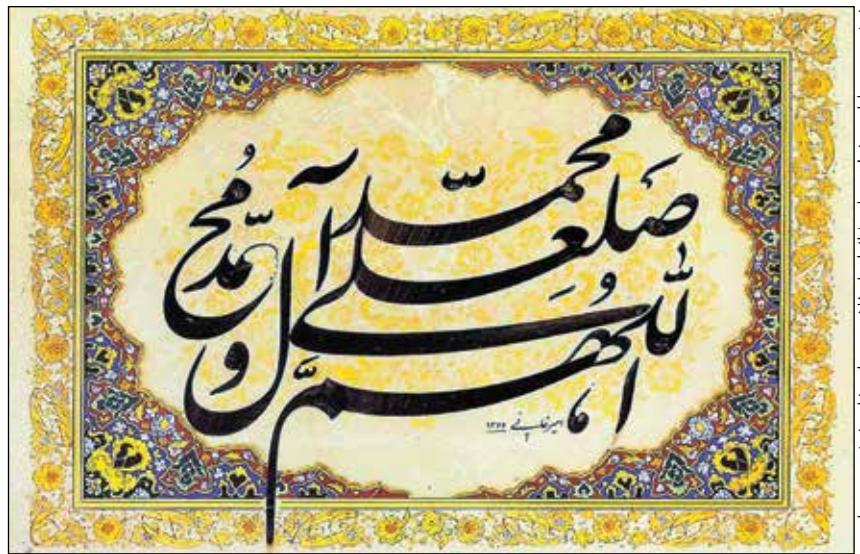 اللّٰهُمَّ صَلِّ عَلَی
مُحَمَّد وَ آلِ مُحَمَّد
امیرخانی
۱۳۶۶